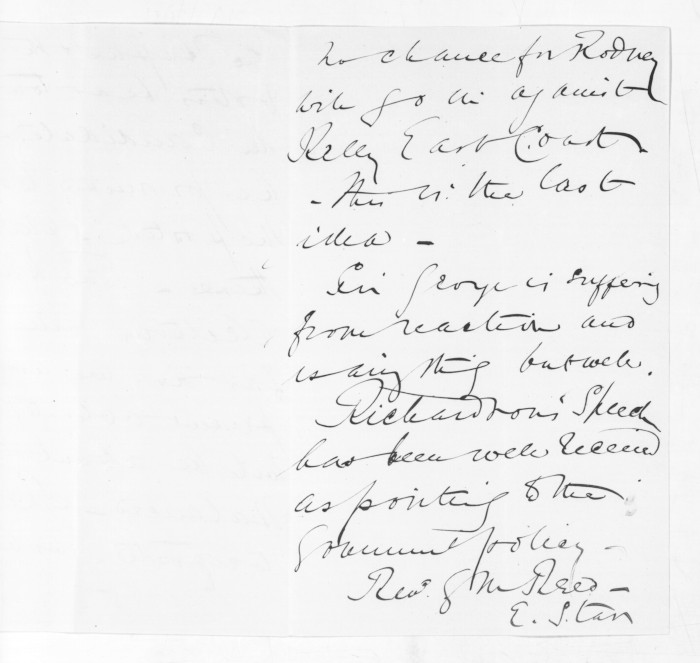 no chance for Rodney
will go in against
Kelly East Coast
- this is the last
idea -
Sir George is suffering
from reaction and
is anything but well.
Richardson's Speech
has been well received
as pointing to the
Government policy -
Revd. G M Reed -
E. Star